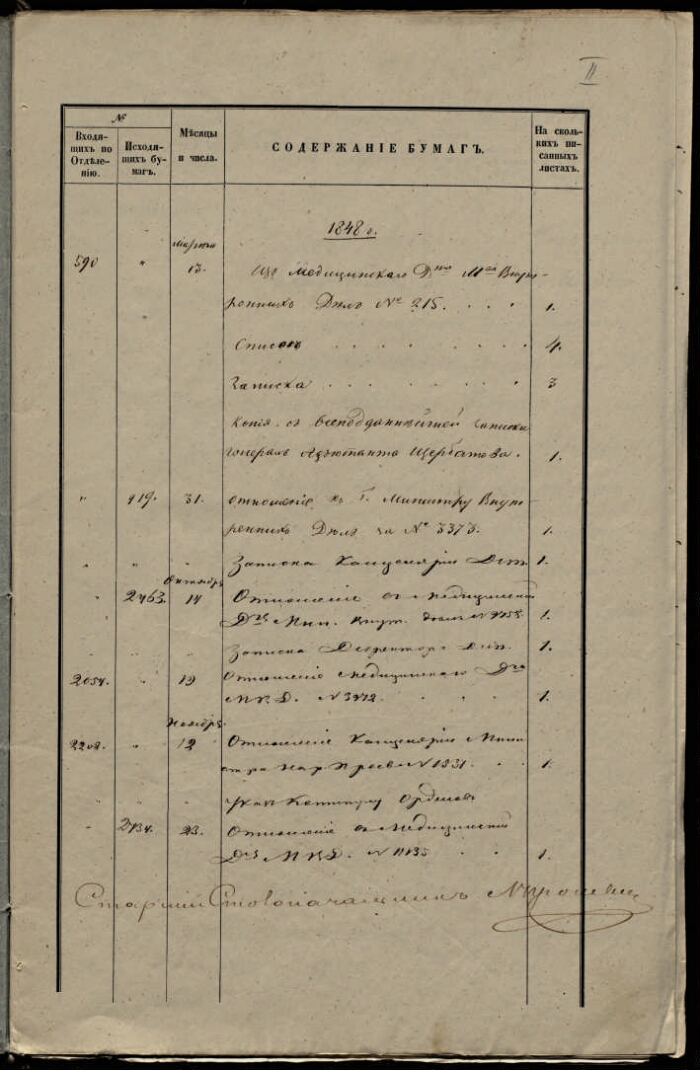 II
№
Входящихъ по Отдѣленію.
Исходящихъ бумагъ.
Мѣсяцы и числа.
СОДЕРЖАНІЕ БУМАГЪ.
На сколькихъ писанныхъ листахъ.
1848 г.
Марта
590 " 13. Изъ Медицинскаго Д-та М-ва Внут-
реннихъ Дѣлъ № 215. . . . 1.
Списокъ . . . . . . . 4.
Записка . . . . . . . 3
Копія съ всеподданнѣйшей записки
Генералъ Адъютанта Щербатова. 1.
" 919. 31. Отношеніе къ Г. Министру Внут-
реннихъ Дѣлъ за № 3373. 1.
" " Записка Канцеляріи Деп. 1.
Октября
" 2463. 14 Отношеніе въ Медицинскій
Д-тъ Мин. Внут. Дѣлъ № 1.
" Записка Директора Деп. 1.
2054. " 19 Отношеніе Медицинскаго Д-та
М. В. Д. № 3972. . . 1.
Ноября
2202. " 12 Отношеніе Канцеляріи Мини-
стра Нар. Просв. № 1831. . . 1.
" " " Капитулу Орденовъ
" 2734. 23. Отношеніе въ Медицинскій
Д-тъ М. В. Д. № 11135 . . 1.
Старшій Столоначальникъ